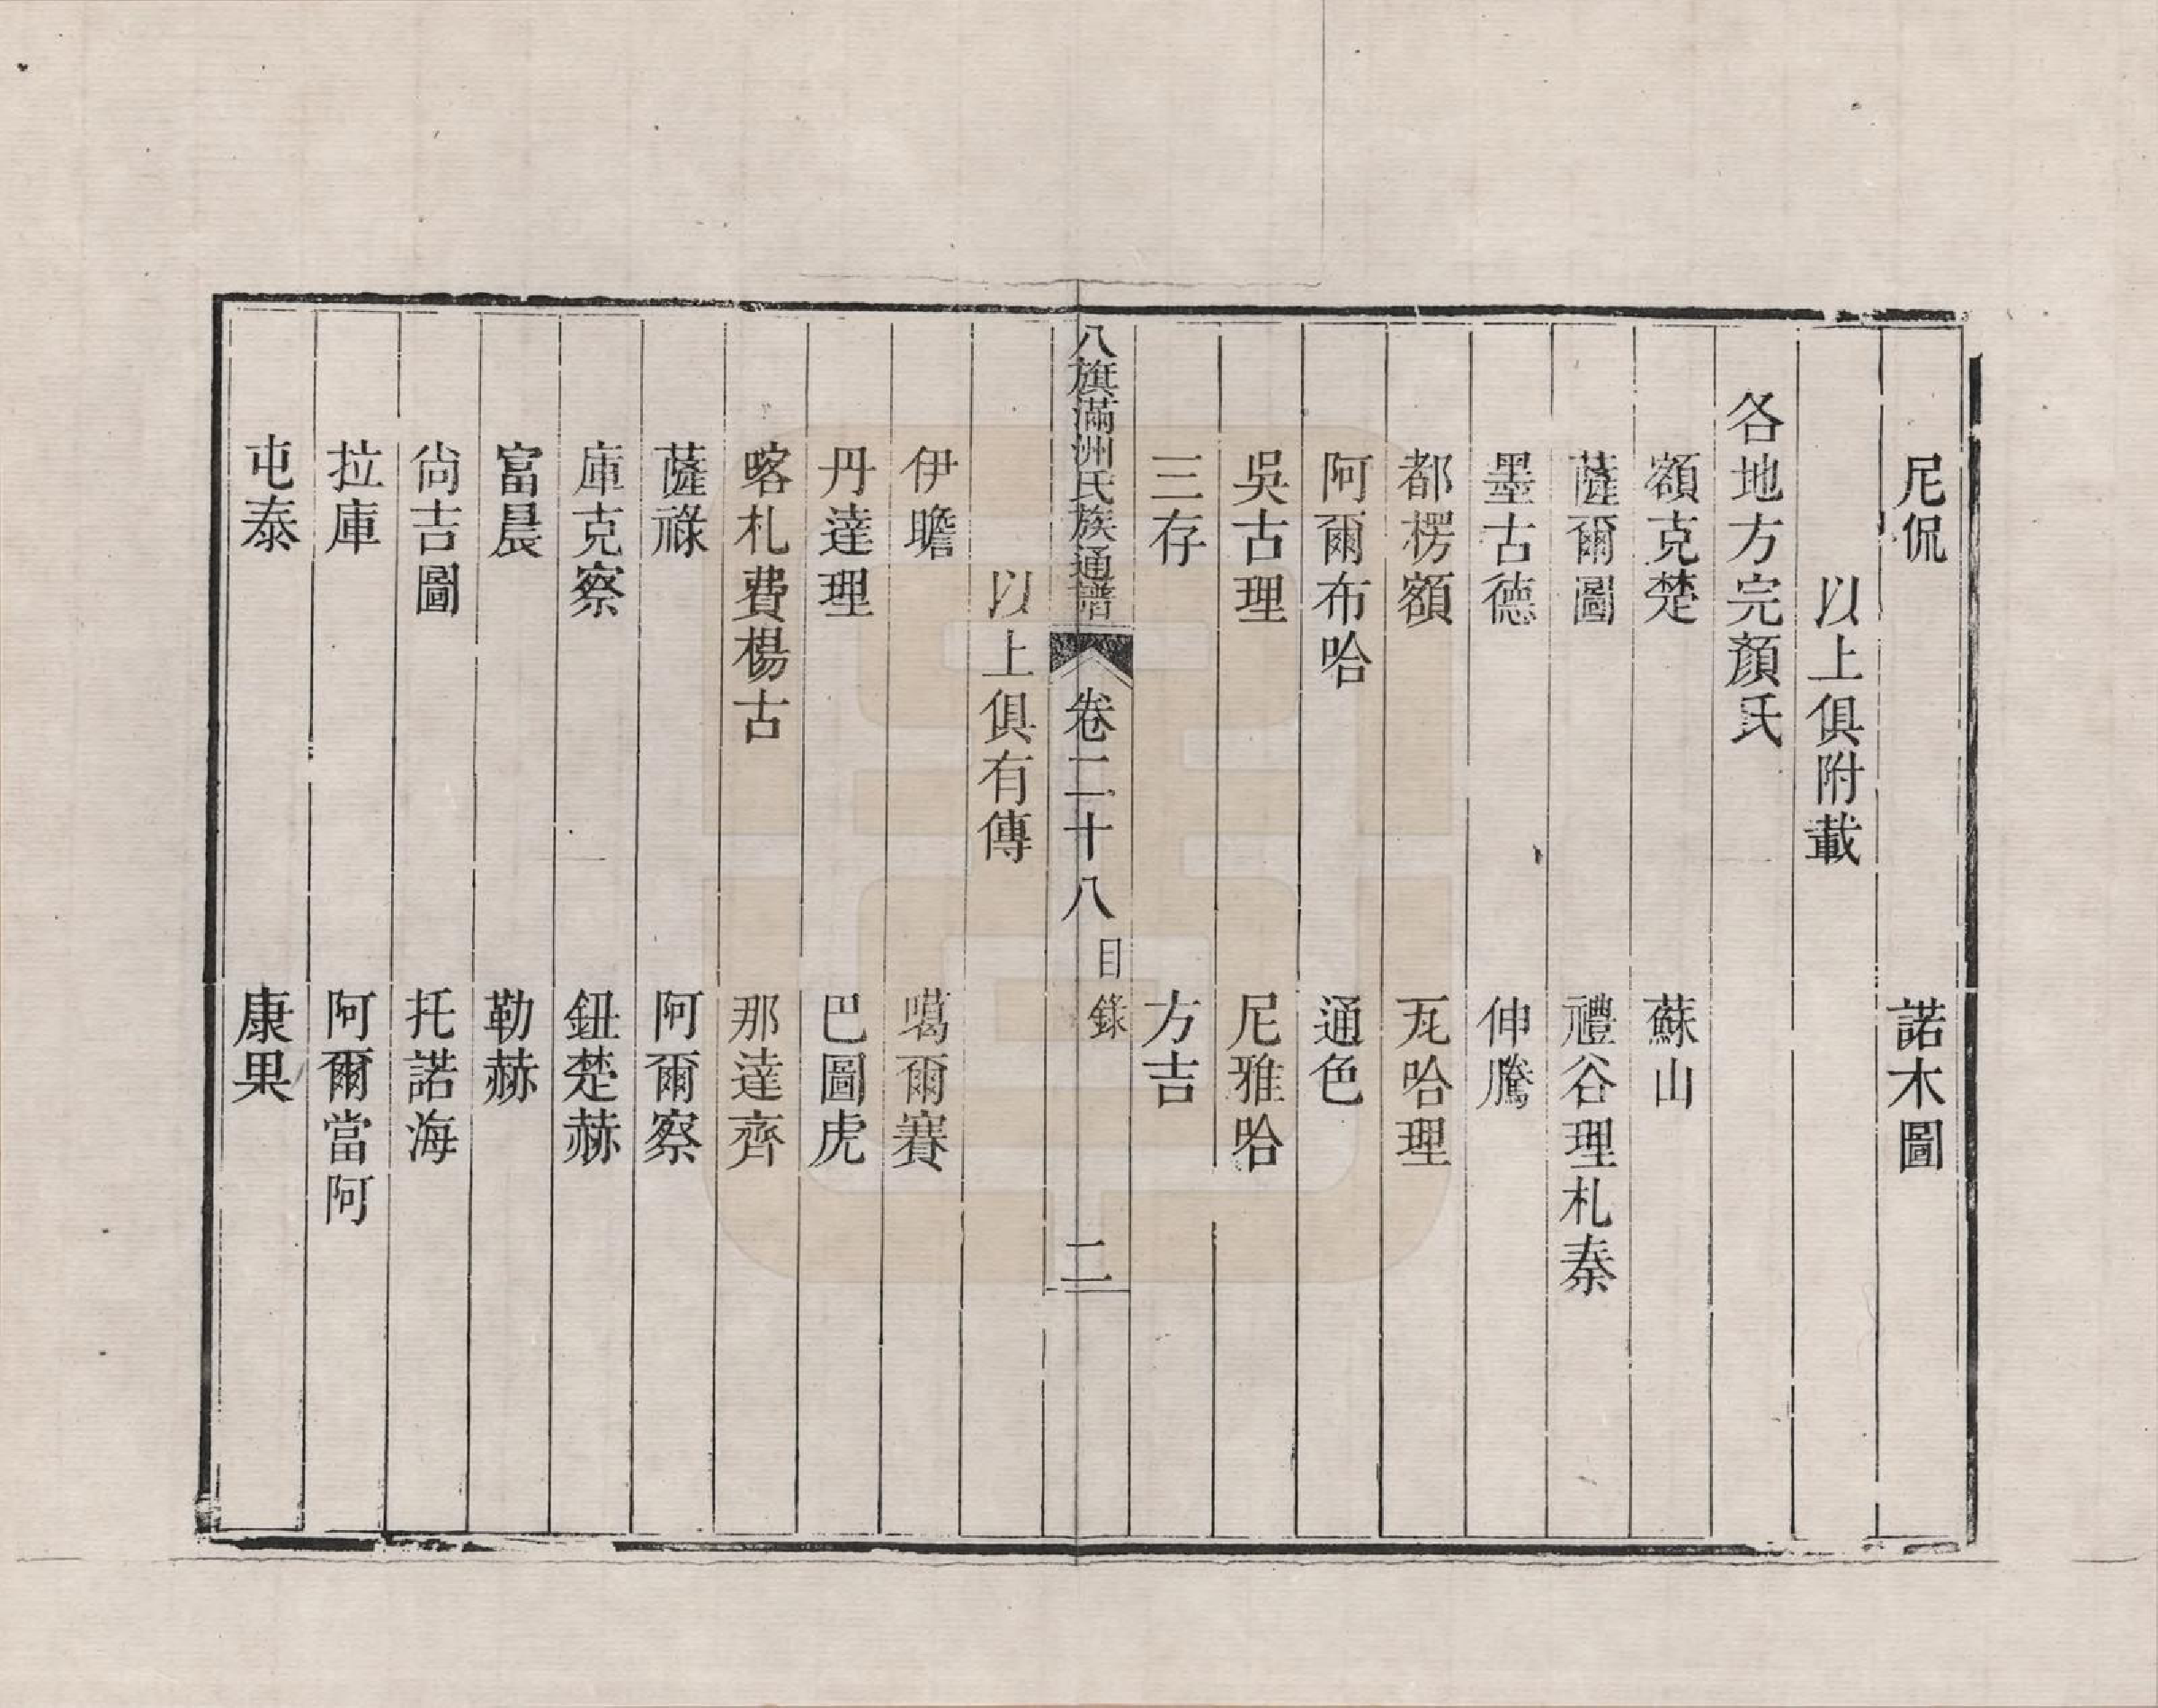 尼侃　諾木圖
以上俱附載
各地方完顏氏
額克楚　蘇山
薩爾圖　禮谷理札泰
墨古德　伸騰
都楞額　瓦哈理
阿爾布哈　通色
吳古理　尼雅哈
三存　方吉
八旗滿洲氏族通譜　卷二十八　目錄　二
以上俱有傳
伊瞻　噶爾賽
丹達理　巴圖虎
喀札費楊古　那達齊
薩祿　阿爾察
庫克察　鈕楚赫
富晨　勒赫
尙吉圖　托諾海
拉庫　阿爾當阿
屯泰　康果